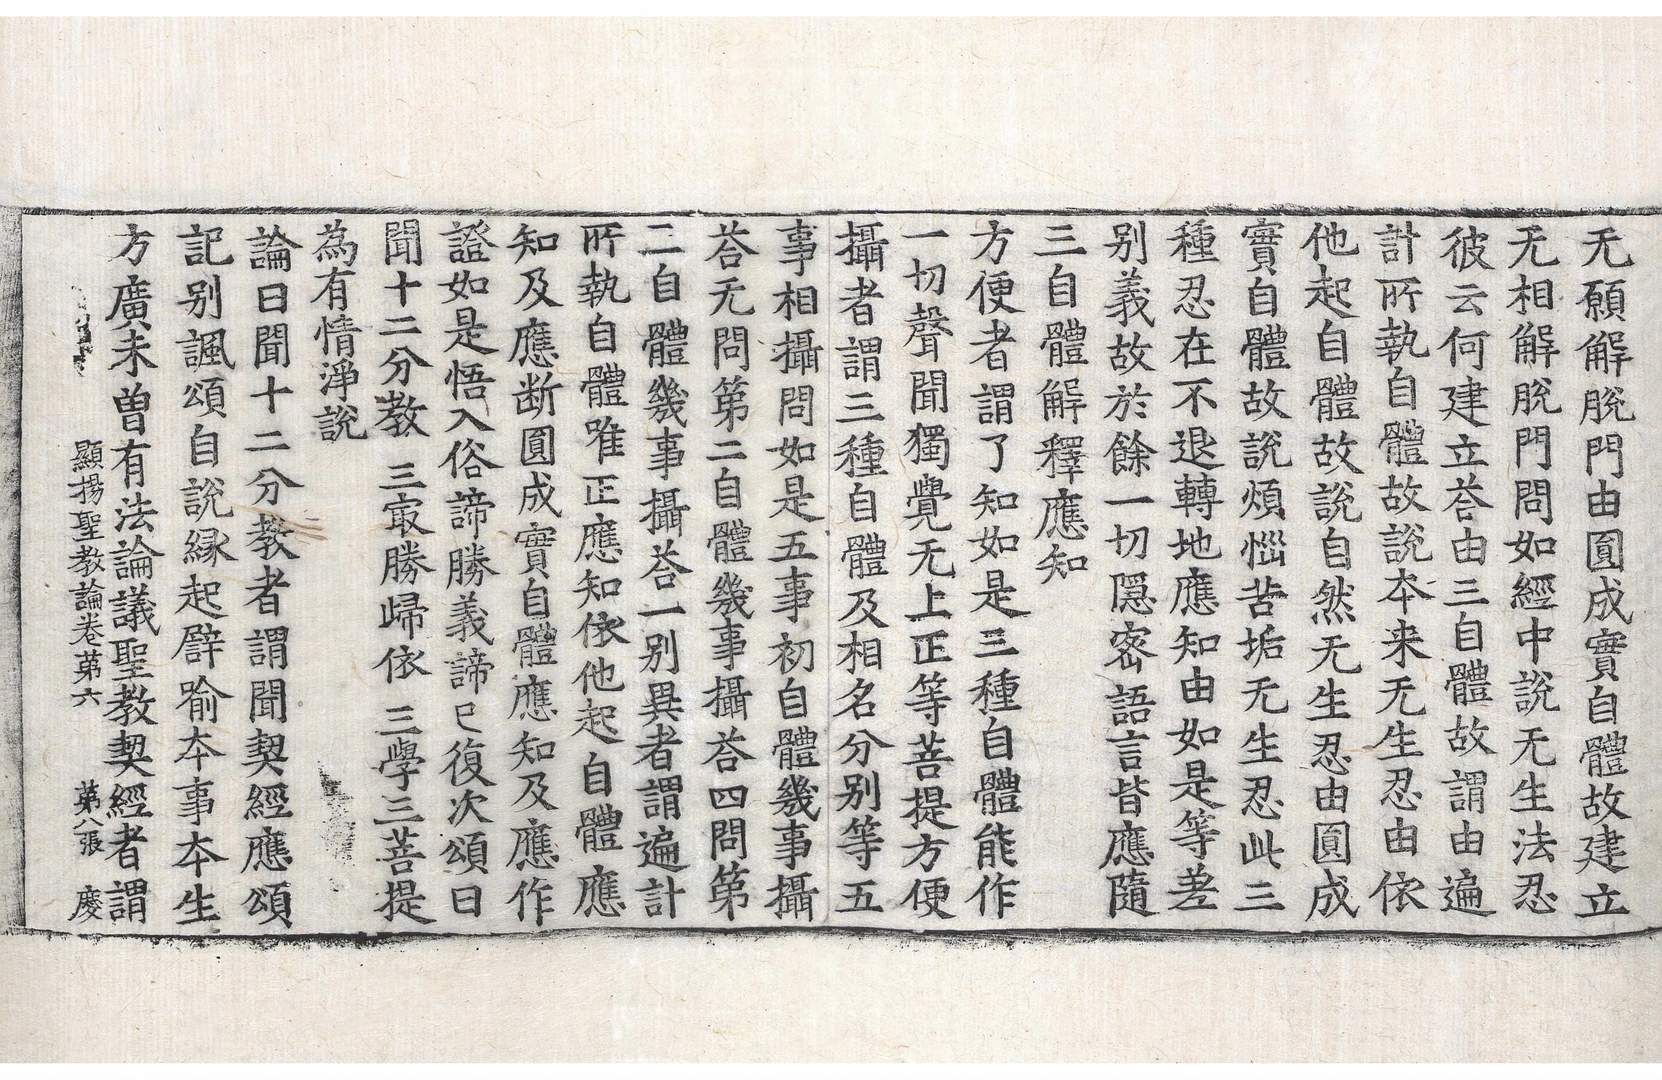 无願解脫門由圓成實自體故建立
无相解脫門問如經中說无生法忍
彼云何建立荅由三自體故謂由遍
計所執自體故說本来无生忍由依
他起自體故說自然无生忍由圓成
實自體故說煩惱苦垢无生忍此三
種忍在不退轉地應知由如是等差
别義故於餘一切隱密語言皆應隨
三自體解釋應知
方便者謂了知如是三種自體能作
一切聲聞獨覺无上正等菩提方便
攝者謂三種自體及相名分别等五
事相攝問如是五事初自體幾事攝
荅无問第二自體幾事攝荅四問第
二自體幾事攝荅一别異者謂遍計
所執自體唯正應知依他起自體應
知及應断圓成實自體應知及應作
證如是悟入俗諦勝義諦已復次頌曰
聞十二分教 三㝡勝歸依 三學三菩提
為有情淨說
論曰聞十二分教者謂聞契經應頌
記别諷頌自說縁起辟喻本事本生
方廣未曾有法論議聖教契經者謂
顯揚聖教論卷第六 第八張 慶